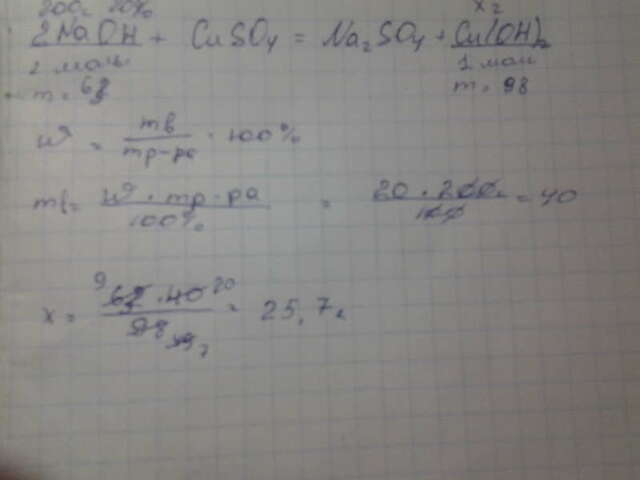 200г 20% x г
2NaOH + CuSO4 = Na2SO4 + Cu(OH)2
2 моль 1 моль
m = 63 m = 98
w = mв / mр-ра · 100%
mв = w · mр-ра / 100% = 20 · 200 / 100 = 40
x = 63 · 40 / 98 = 25,7г
9 20
49 7